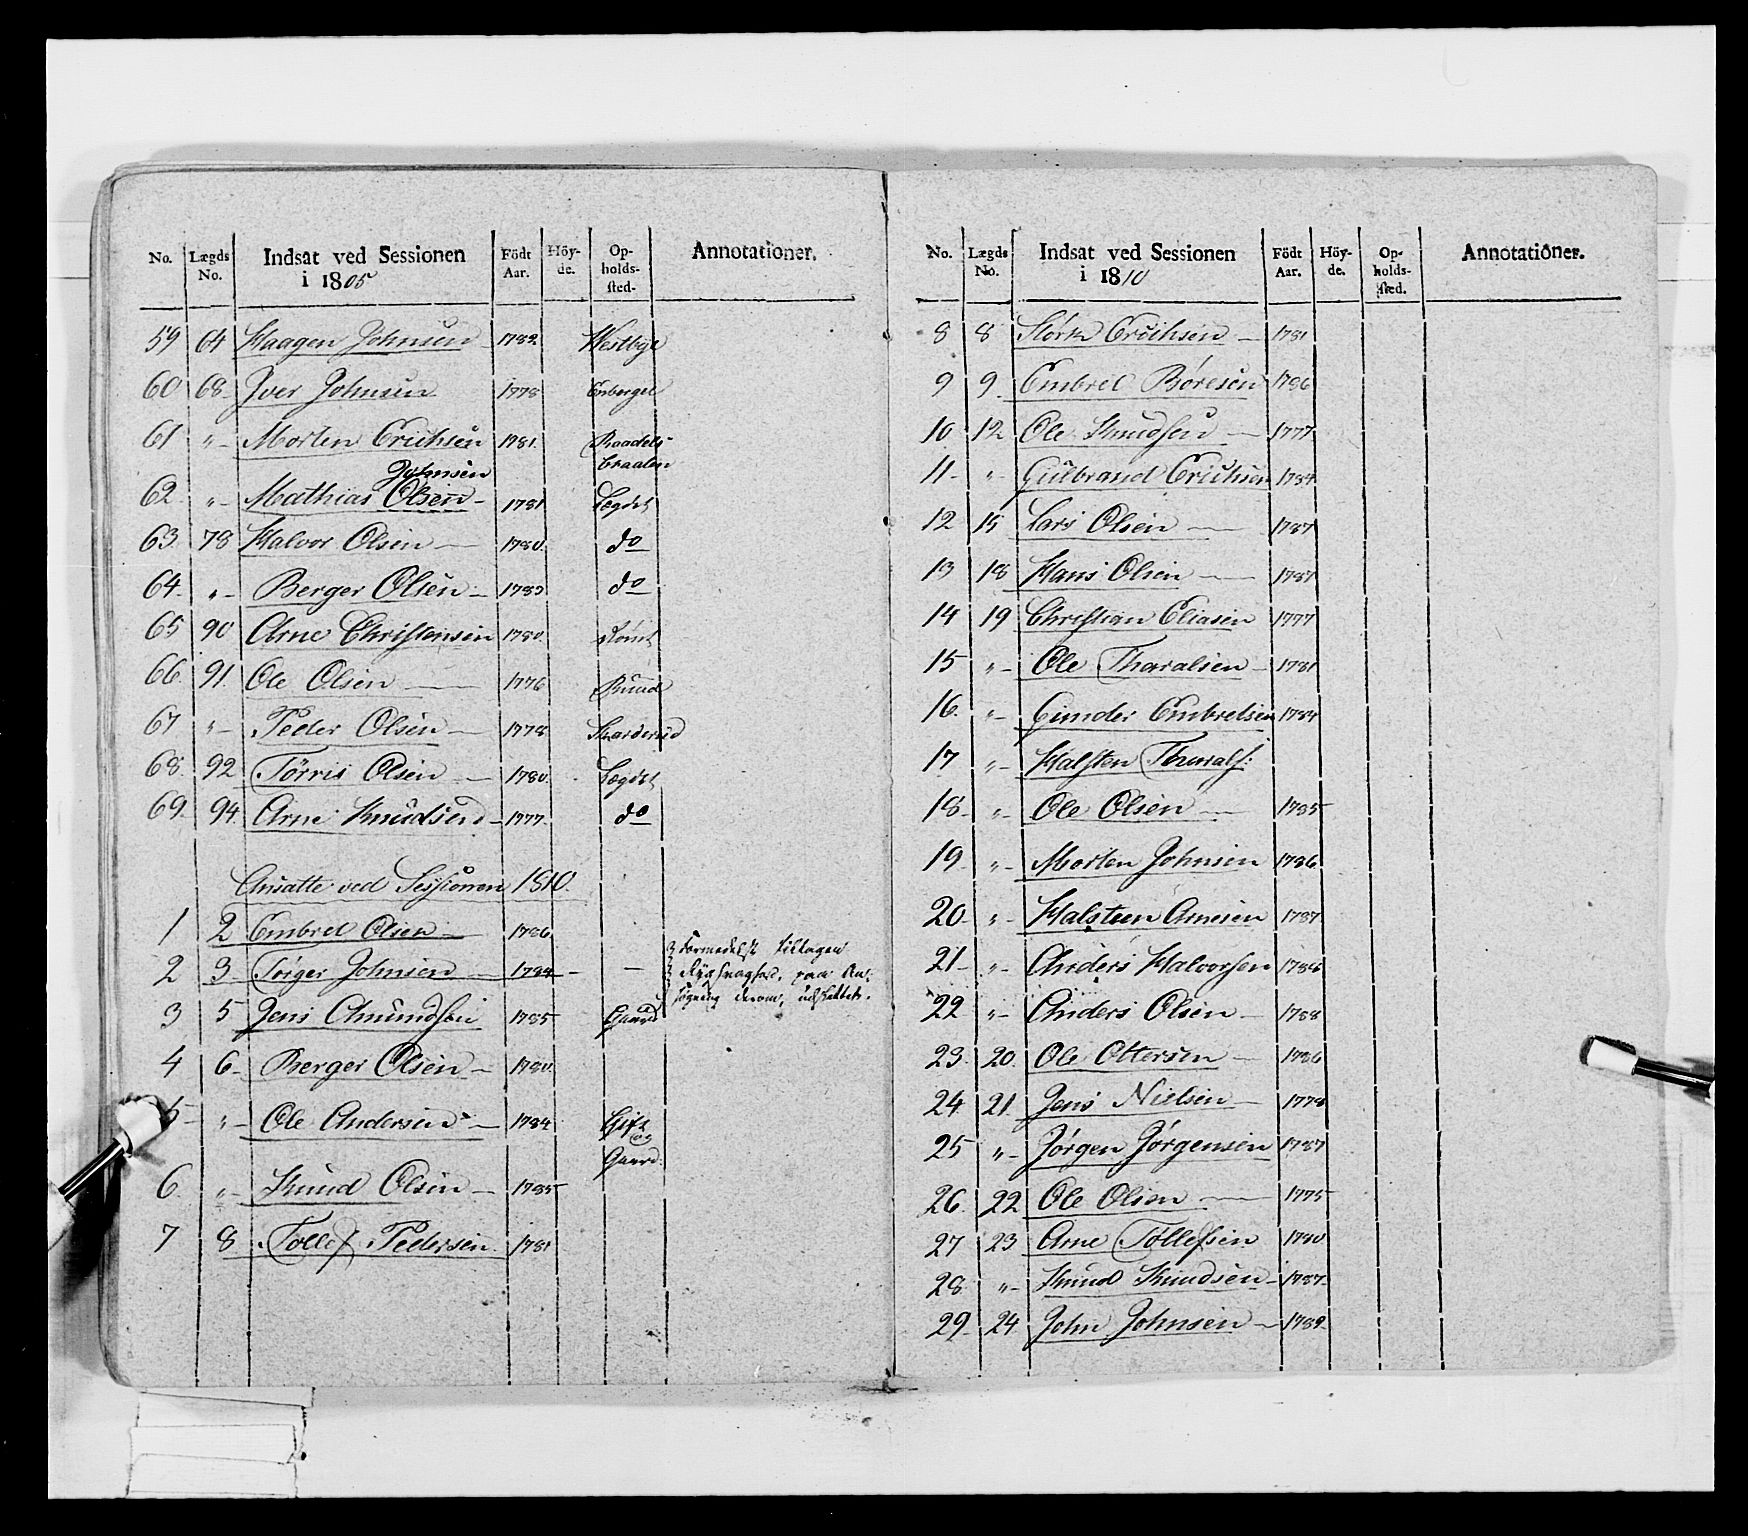 No. Lægds No. Indsat ved Sessionen i 1805 Födt Aar. Höy-de. Op-holds-sted. Annotationer.
59 64 Haagen Johnsen 1782 Westbye
60 68 Iver Johnsen 1778 Enberget
61 " Morten Erichsen 1781 Raadels-
braaten
Johnsen
62 " Mathias Olsen 1781 Lægdet
63 78 Halvor Olsen 1780 do
64 " Berger Olsen 1783 do
65 90 Arne Christensen 1780
66 91 Ole Olsen 1776 Ruud
67 " Peder Olsen 1778 Skarderud
68 92 Törris Olsen 1780 Lægdet
69 94 Arne Knudsen 1777 do
Ansatte ved Sessionen 1810
1 2 Embret Olsen 1786
2 3 Törger Johnsen 1784 Formedelst tiltagen
Rygsvaghed, paa An-
søgning derom, udslettet.
3 5 Jens Amundsen 1785 Gaard
4 6 Berger Olsen 1780
5 " Ole Andersen 1784 Gift
og
Gaard
6 " Knud Olsen 1785
7 8 Tollef Pedersen 1781
No. Lægds No. Indsat ved Sessionen i 1810 Födt Aar. Höy-de. Op-holds-sted. Annotationer.
8 8 Störk Erichsen 1781
9 9 Embret Böresen 1786
10 12 Ole Knudsen 1777
11 " Gulbrand Erichsen 1784
12 15 Lars Olsen 1787
13 18 Hans Olsen 1787
14 19 Christian Eliasen 1777
15 " Ole Tharalsen 1781
16 " Gunder Embretsen 1784
17 " Halsten Tharals:
18 " Ole Olsen 1785
19 " Morten Johnsen 1786
20 " Halsteen Arnesen 1787
21 " Anders Halvorsen 1786
22 " Anders Olsen 1788
23 20 Ole Ottersen 1786
24 21 Jens Nielsen 1778
25 " Jörgen Jörgensen 1787
26 22 Ole Olsen 1775
27 23 Arne Tollefsen 1780
28 " Knud Knudsen 1787
29 24 John Johnsen 1782